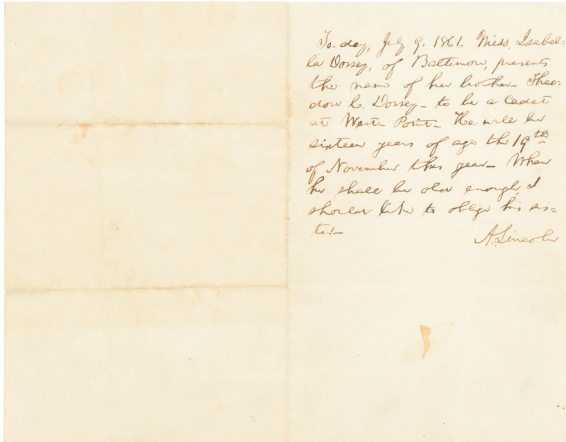 To-day, July 9. 1861. Miss. Isabel=
la Dorsey, of Baltimore, presents
the name of her brother— Theo-
dore C. Dorsey— to be a Cadet
at West- Point— He will be
sixteen years of age the 19th
of November this year— When
he shall be old enough, I
should like to oblige his sis=
ter—
A. Lincoln